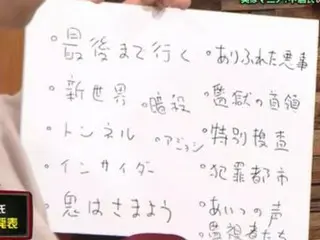 ・最後まで行く
・新世界
・暗殺
・トンネル
・アジョシ
・インサイダー
・鬼はさまよう
・ありふれた悪事
・監獄の首領
・特別捜査
・犯罪都市
・あいつの声
・監視者たち
発表